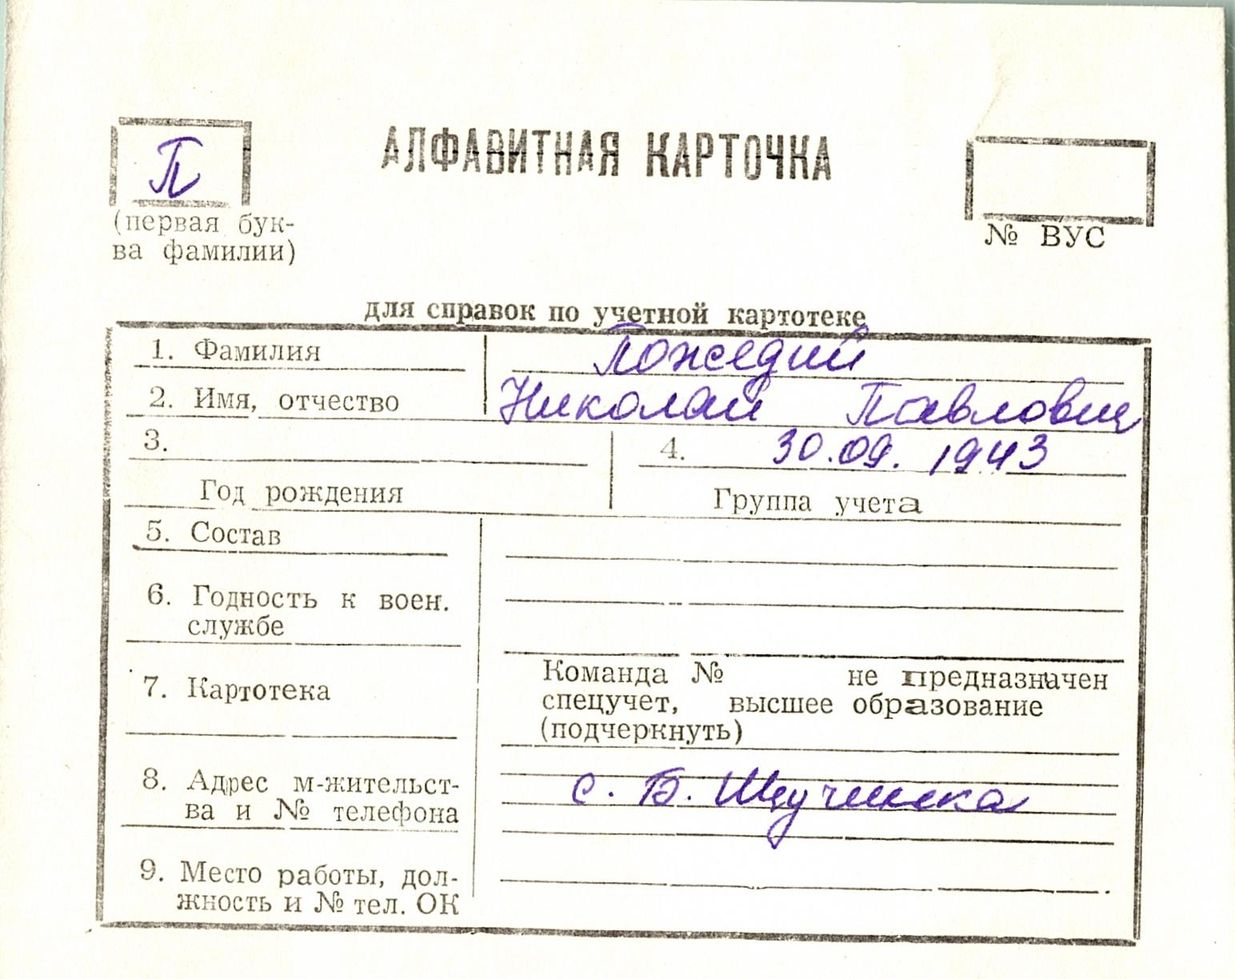 П
АЛФАВИТНАЯ КАРТОЧКА
(первая бук-
ва фамилии)
№ ВУС
для справок по учетной картотеке
1. Фамилия Пожедий
2. Имя, отчество Николай Павлович
3. 4. 30.09.1943
Год рождения Группа учета
5. Состав
6. Годность к воен.
службе
7. Картотека
Команда № не предназначен
спецучет, высшее образование
(подчеркнуть)
8. Адрес м-жительст-
ва и № телефона
с. Б. Щучинка
9. Место работы, дол-
жность и № тел. ОК